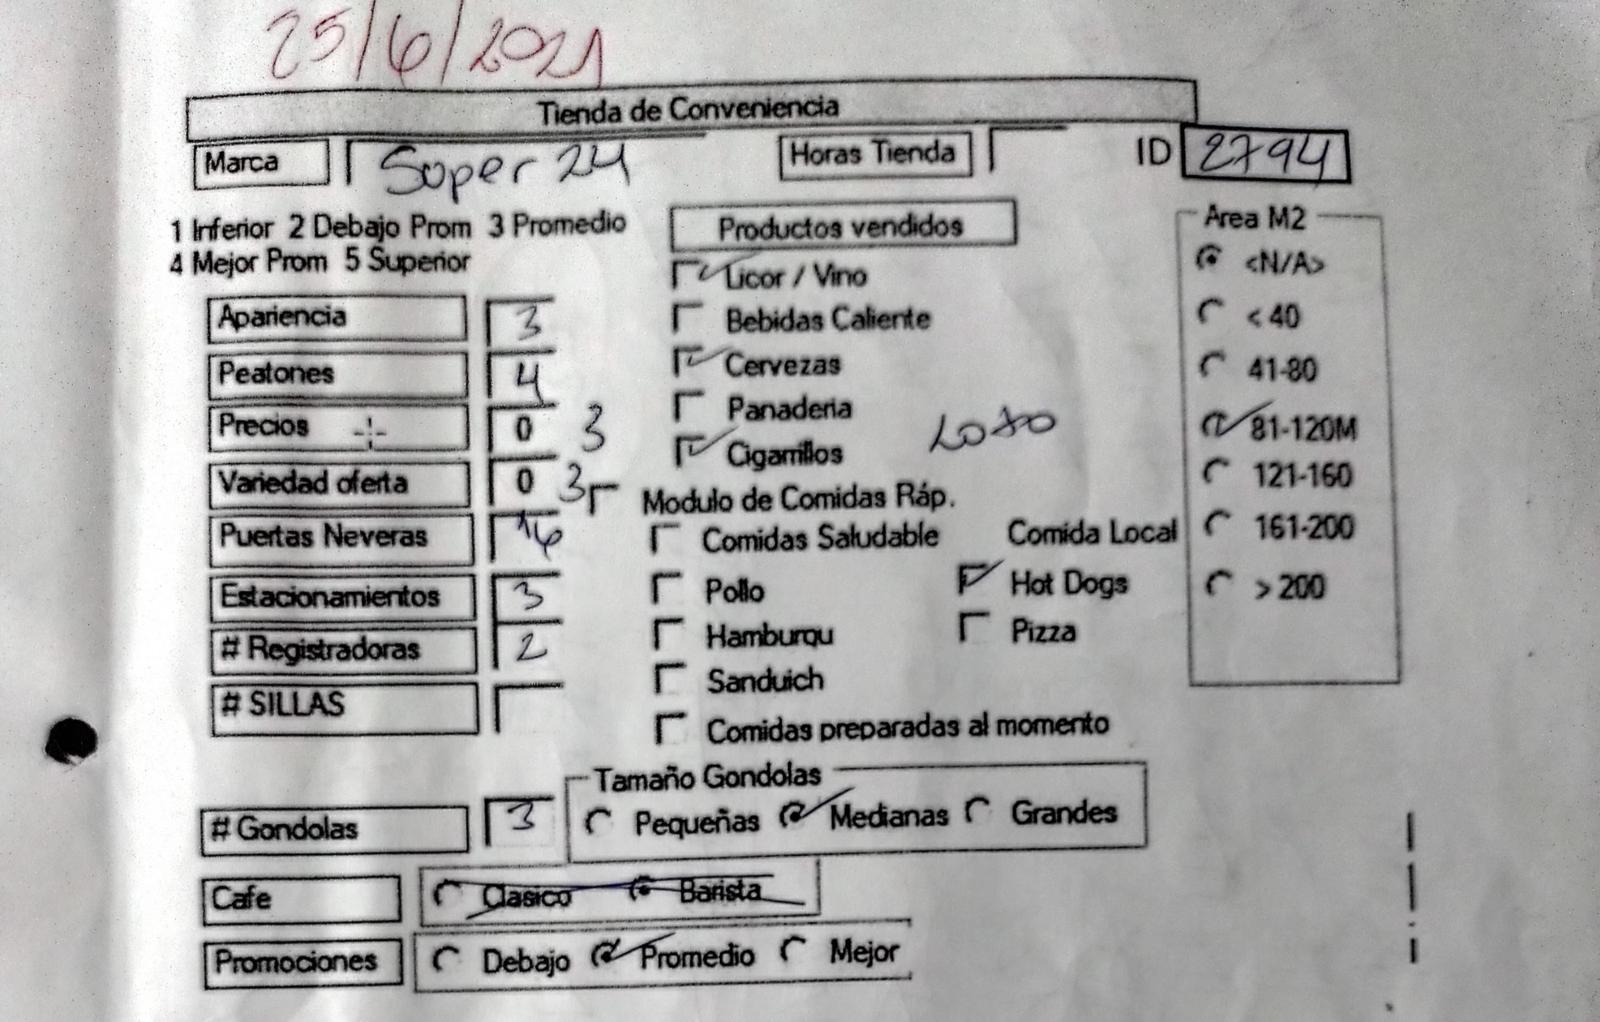 25/6/2021
Tienda de Conveniencia
Marca Super 24 Horas Tienda ID 2794
1 Inferior 2 Debajo Prom 3 Promedio
4 Mejor Prom 5 Superior
Productos vendidos
Area M2
Licor / Vino
<N/A>
Apariencia 3
Bebidas Caliente
< 40
Peatones 4
Cervezas
41-80
Precios 0 3
Panaderia
Loto
81-120M
Cigarrillos
Variedad oferta 0 3
121-160
Modulo de Comidas Ráp.
Puertas Neveras 16
Comidas Saludable
Comida Local
161-200
Estacionamientos 3
Pollo
Hot Dogs
> 200
# Registradoras 2
Hamburgu
Pizza
# SILLAS
Sanduich
Comidas preparadas al momento
Tamaño Gondolas
# Gondolas 3
Pequeñas Medianas Grandes
Cafe
Clasico Barista
Promociones
Debajo Promedio Mejor